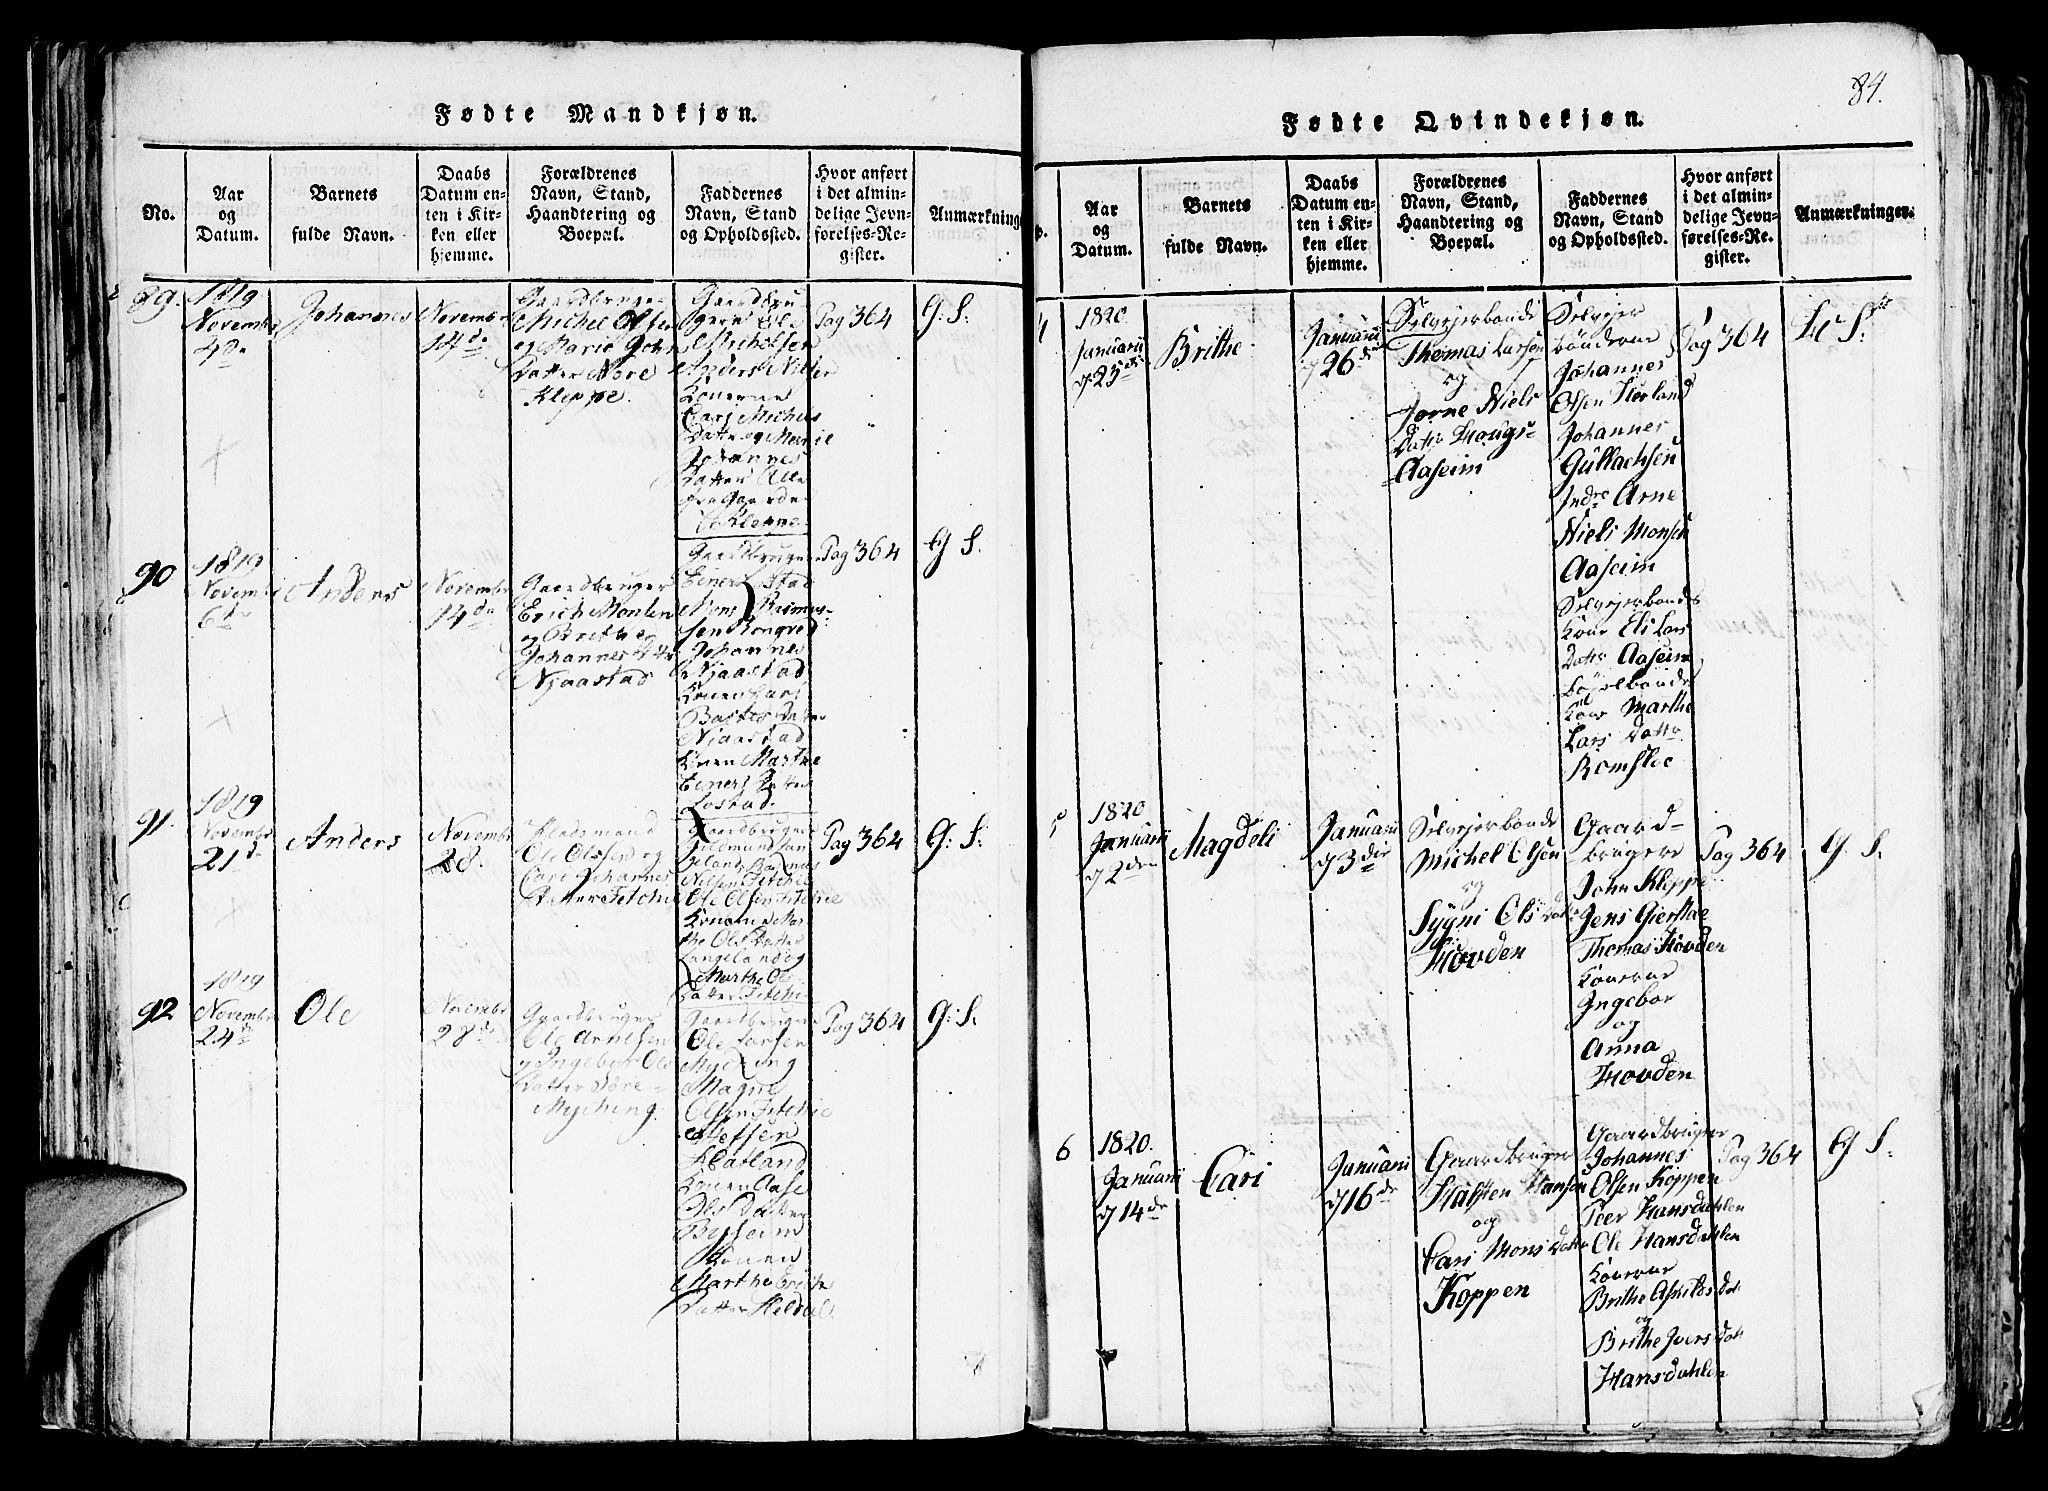 Fødte Mandkjøn.
No.
Aar
og
Datum.
Barnets
fulde Navn.
Daabs
Datum en-
ten i Kir-
ken eller
hjemme.
Forældrenes
Navn, Stand,
Haandtering og
Boepæl.
Faddernes
Navn, Stand
og Opholdssted.
Hvor anført
i det almin-
delige Jevn-
førelses-Re-
gister.
Anmærkning
89.
1819
Novembr
4de
Johannes
Novembr
14de
Gaardbruger
Michel Olsen
og Marie Johns
Datter Nore
Kleppe.
Gaardbru
gern Ole
Michelsen
Anders Nilsen
Konerne
Cari Michels
Datter og Marie
Johannes
Datter Alle
fra Gaarden
Kleppe
Pag 364
G. S.
90
1819
Novembr
6te
Anders
Novembr
14de
Gaardbruger
Erich Monsen
og Brithe
Johannes Dtr
Njaastad
Gaardbruger
Einer
Mons Rasmus-
sen
Johannes
Njaastad
Konen Cari
Datter
Njaastad
Konen Marthe
Einers Datter
Pag 364
G S.
91.
1819
Novembr
21de
Anders
Novembr
28.
Ole Olssen og
Cari Johannes
Datter Titchie
Gaardbruger
Nilsen Titchie
Ole Olsen Titchie
Konerne Mar-
the Ols Datter
Langeland og
Marthe Ols
Datter Titchie
Pag 364
G: S:
92
1819
Novembr
24de
Ole
Novembr
28de
Gaardbruger
Ole Arnesen
og Ingebor Ols
Datter Store-
Myching
Gaardbruger
Ole Larsen
Myching
Magne
Olsen Titchie
Konen Aase
Ols Datter
Konen
Marthe Erichs
Datter Heldal
Pag 364
G: S.
84.
Fødte Qvindekjøn.
o.
Aar
og
Datum.
Barnets
fulde Navn.
Daabs
Datum en-
ten i Kir-
ken eller
hjemme.
Forældrenes
Navn, Stand,
Haandtering og
Boepæl.
Faddernes
Navn, Stand
og Opholdssted.
Hvor anført
i det almin-
delige Jevn-
førelses-Re-
gister.
Anmærkninger.
4
1820
Januarii
d 23de
Brithe
Januarii
d 26de
Selvejerbonde
Thomas Larsen
og
Jorne Niels
Datter Hougs-
Aaseim
Selvejer
bønderne
Johannes
Olsen Horland
Johannes
Gullachsen
Indre Arne
Niels Monsen
Aaseim
Selvejerbondes
Kone Eli Lars
Datter Aaseim
Kone Marthe
Lars Datter
Romsloe
Pag 364
5
1820
Januarii
d 2den
Magdeli
Januarii
d 3die
Selvejerbonde
Michel Olsen
og
Sygni Ols Datter
Hovden
Gaard-
brugere
John Kleppe
Jens Gierstae
Thomas Hovden
Konerne
Ingebor
og
Anna
Hovden
Pag 364
G. S.
6
1820.
Januarii
d 14de
Cari
Januarii
d 16de
Gaardbruger
Halsten Hansen
og
Cari Mons Datter
Koppen
Gaardbruger
Johannes
Olsen Koppen
Peer Hansdahlen
Ole Hansdahlen
Konerne
Brithe Askilds dat
og
Brithe Ivers Dat
Hansdahlen
Pag 364
G S.